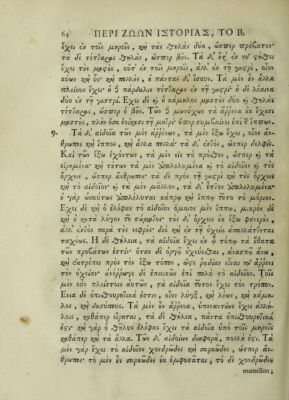 64 ΠΕΡΙ ΖΩΩΝ ΙΣΤΟΡΙΑΣ, ΤΟ Β.
ἔχει ἐν τοῖς μηροῖς, καὶ τὰς θηλὰς δύο, ὥσπερ πρόβατον·
τὰ δὲ τέτταρας θηλὰς, ὥσπερ βοῦς. Τὰ δ' οὔτ' ἐν τῷ στήθει
ἔχει τὰς μαστὸς, οὔτ' ἐν τοῖς μηροῖς, ἀλλ' ἐν τῇ γαστρὶ, οἷον
κύων καὶ ὗς· καὶ πολλὰς, οὐ πάντας δ' ἴσους. Τὰ μὲν οὖν ἄλλα
πλείους ἔχει· ἡ δὲ πάρδαλις τέτταρας ἐν τῇ γαστρί· ἡ δὲ λέαινα
δύο ἐν τῇ γαστρί. Ἔχει δὲ καὶ ἡ κάμηλος μαστοὺς δύο καὶ θηλὰς
τέτταρας, ὥσπερ ἡ βοῦς. Τῶν δὲ μωνύχων τὰ ἄρρενα οὐκ ἔχουσι
μαστοὺς, πλὴν ὅσα ἐοίκασι τῇ μητρί· ὅπερ συμβαίνει ἐπὶ τῶν ἵππων.
9. Τὰ δ' αἰδοῖα τῶν μὲν ἀρρένων, τὰ μὲν ἔξω ἔχει, οἷον ἄν-
θρωπος καὶ ἵππος, καὶ ἄλλα πολλά· τὰ δ' ἐντὸς, ὥσπερ δελφίς.
Καὶ τῶν ἔξω ἐχόντων, τὰ μὲν εἰς τὸ πρόσθεν, ὥσπερ καὶ τὰ
εἰρημένα· καὶ τούτων τὰ μὲν ἀπολελυμένα καὶ τὸ αἰδοῖον καὶ τοὺς
ὄρχεις, ὥσπερ ἄνθρωπος· τὰ δὲ πρὸς τῇ γαστρὶ καὶ τοὺς ὄρχεις
καὶ τὸ αἰδοῖον· καὶ τὰ μὲν μᾶλλον, τὰ δ' ἧττον ἀπολελυμένα·
οὐ γὰρ ὡσαύτως ἀπολέλυται κάπρῳ καὶ ἵππῳ τοῦτο τὸ μόριον.
Ἔχει δὲ καὶ ὁ ἐλέφας τὸ αἰδοῖον ὅμοιον μὲν ἵππῳ, μικρὸν δὲ
καὶ οὐ κατὰ λόγον τοῦ σώματος· τοὺς δ' ὄρχεις οὐκ ἔξω φανερὰς,
ἀλλ' ἐντὸς παρὰ τοὺς νεφρούς· διὸ καὶ ἐν τῇ ὀχείᾳ ἀπαλλάττεται
ταχέως. Ἡ δὲ θήλεια, τὰ αἰδοῖα ἔχει ἐν ᾧ τόπῳ τὰ οὔθατα
τῶν προβάτων ἐστίν· ὅταν δὲ ὀργᾷ ὀχεύεσθαι, ἀνασπᾷ ἄνω,
καὶ ἐκτρέπει πρὸς τὸν ἔξω τόπον, ὥστε ῥᾳδίαν εἶναι τῷ ἄρρενι
τὴν ὀχείαν· ἀνέρρωγε δὲ ἐπιεικῶς ἐπὶ πολὺ τὸ αἰδοῖον. Τοῖς
μὲν οὖν πλείστοις αὐτῶν, τὰ αἰδοῖα τοῦτον ἔχει τὸν τρόπον.
Ἔνια δὲ ὀπισθουρητικά ἐστιν, οἷον λὺγξ, καὶ λέων, καὶ κάμη-
λος, καὶ δασύπους. Τὰ μὲν οὖν ἄρρενα, ὑπεναντίως ἔχει ἀλλή-
λοις, καθάπερ εἴρηται, τὰ δὲ θήλεια, πάντα ὀπισθουρητικά
ἐστι· καὶ γὰρ ὁ θῆλυς ἐλέφας ἔχει τὰ αἰδοῖα ὑπὸ τοῖς μηροῖς
καθάπερ καὶ τὰ ἄλλα. Τῶν δ' αἰδοίων διαφορὰ, πολλή ἐστι. Τὰ
μὲν γὰρ ἔχει τὸ αἰδοῖον χονδρῶδες καὶ σαρκῶδες, ὥσπερ ἄνθρω-
πος· τὸ μὲν οὖν σαρκῶδες οὐκ ἐμφυσᾶται, τὸ δὲ χονδρῶδες
mamellon ;